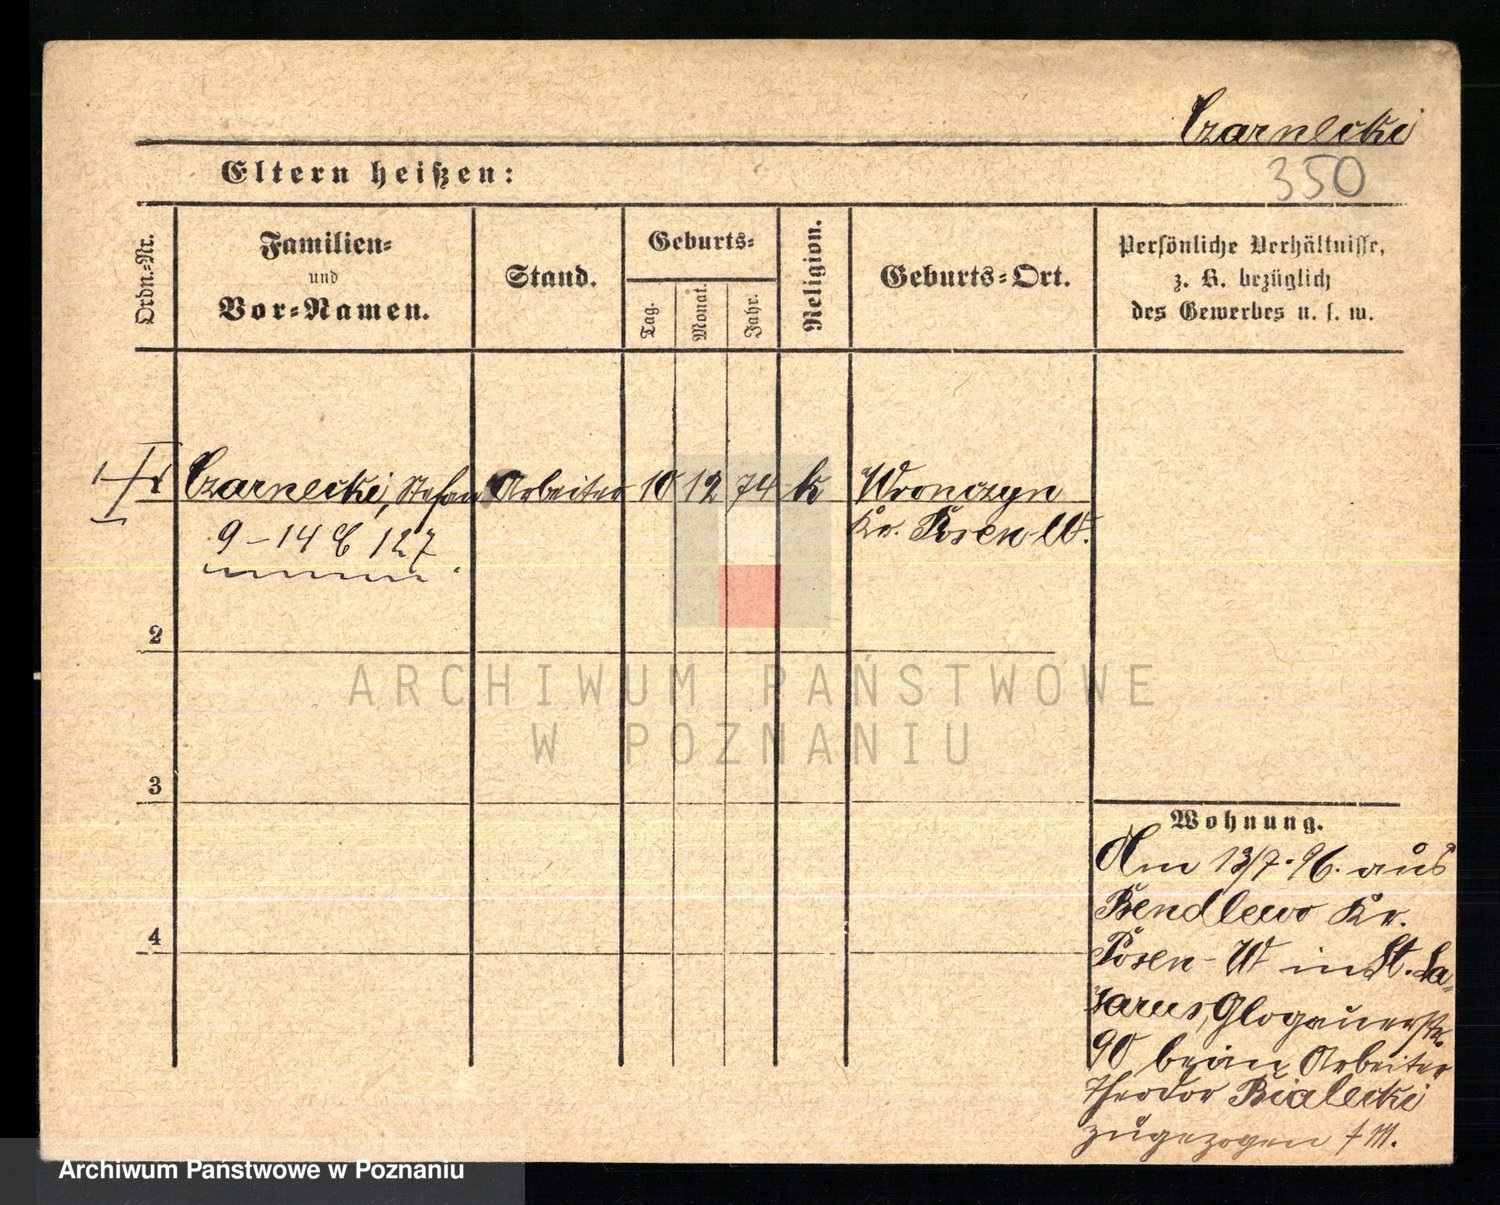 Czarnecki
350
Eltern heißen:
Ordn.-Nr.
Familien-
und
Vor-Namen.
Stand.
Geburts-
Tag.
Monat.
Jahr.
Religion.
Geburts-Ort.
Persönliche Verhältnisse,
z. B. bezüglich
des Gewerbes u. s. w.
1 Czarnecki, Stefan Arbeiter 10 12 74 k Wronczyn
Kr. Posen W.
9-14 C 127
2
3
4
Wohnung.
Am 13/7. 96. aus
Bendlewo Kr.
Posen-W in St. La-
zarus, Glogauerstr.
90 beim Arbeiter
Theodor Bialecki
zugezogen
ARCHIWUM PAŃSTWOWE
W POZNANIU
Archiwum Państwowe w Poznaniu